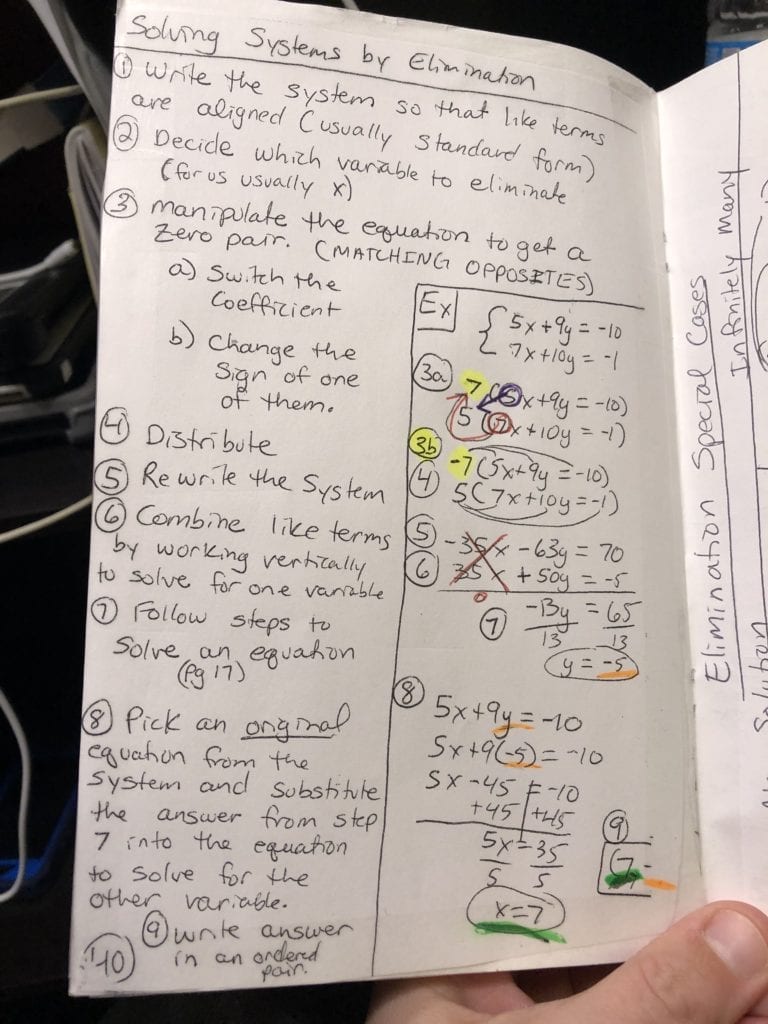 Solving Systems by Elimination
① Write the system so that like terms
are aligned (usually standard form)
② Decide which variable to eliminate
(for us usually x)
③ manipulate the equation to get a
zero pair. (MATCHING OPPOSITES)
a) Switch the
Coefficient
b) Change the
Sign of one
of them.
④ Distribute
⑤ Rewrite the System
⑥ Combine like terms
by working vertically
to solve for one variable
⑦ Follow steps to
Solve an equation
(Pg 17)
⑧ Pick an original
equation from the
System and substitute
the answer from step
7 into the equation
to solve for the
other variable.
⑨ write answer
in an ordered
pair.
10
Ex
{ 5x+9y = -10
7x+10y = -1
3a
7(5x+9y = -10)
5(7x+10y = -1)
3b
-7(5x+9y = -10)
④ 5(7x+10y = -1)
⑤ -35x - 63y = 70
⑥ 35x + 50y = -5
0
⑦ -13y = 65
13 13
y = -5
⑧ 5x+9y = -10
5x+9(-5) = -10
5x -45 = -10
+45 +45
5x = 35
5 5
x=7
⑨
(7, -
Elimination Special Cases
Infinitely Many
Solution